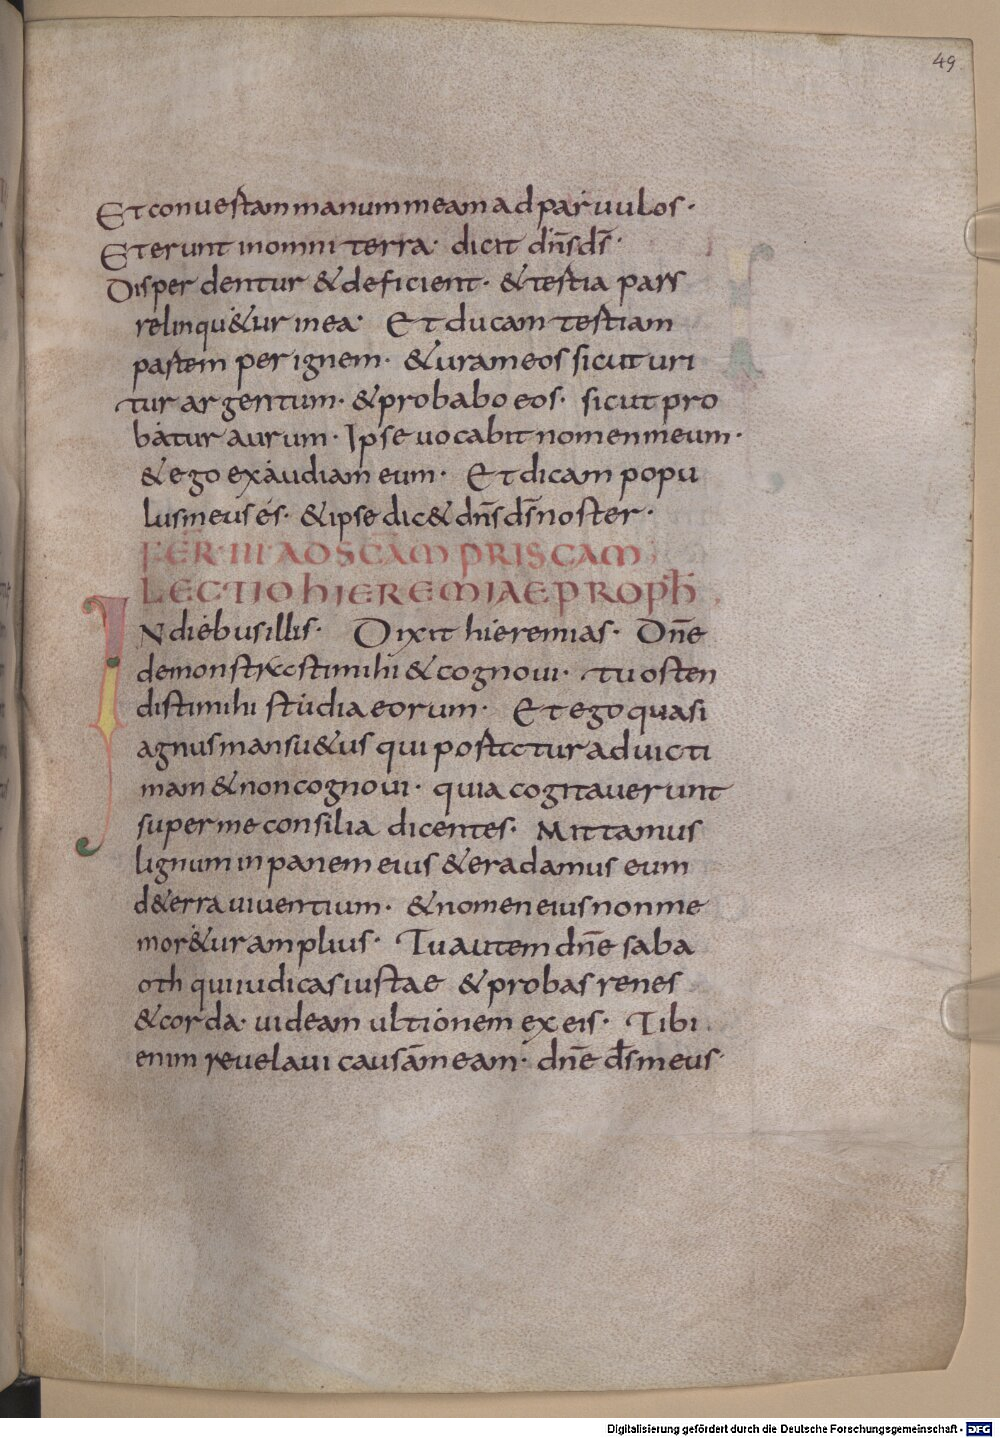 49
Et conuestam manum meam ad paruulos·
Et erunt in omni terra· dicit dñs ds̄·
Disperdentur & deficient· & testia pars
relinqu&ur in ea· Et ducam testiam
pastem per ignem· & uram eos sicut uri
tur argentum· & probabo eos· sicut pro
batur aurum· Ipse uocabit nomen meum·
& ego exaudiam eum· Et dicam popu
lus meus es· & ipse dic& dñs ds̄ noster·
FER̄·III·AD SCĀM PRISCAM
LECTIO HIEREMIAE PROPH̄
IN diebus illis· Dixit hieremias· Dñe
demonstrasti mihi & cognoui· tu osten
disti mihi studia eorum· Et ego quasi
agnus mansu&us qui postatur ad uicti
mam & non cognoui· quia cogitauerunt
super me consilia dicentes· Mittamus
lignum in panem eius & eradamus eum
d&erra uiuentium· & nomen eius non me
mor&ur amplius· Tu autem dñe saba
oth qui iudicas iustae & probas renes
& corda· uideam ultionem ex eis· Tibi
enim reuelaui causām eam· dñe ds̄ meus·
Digitalisierung gefördert durch die Deutsche Forschungsgemeinschaft - DFG